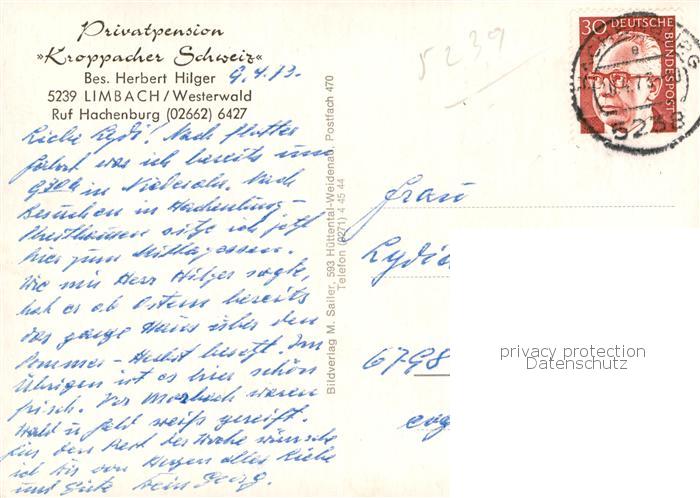 Privatpension
»Kroppacher Schweiz«
Bes. Herbert Hilger
5239 LIMBACH/Westerwald
Ruf Hachenburg (02662) 6427
9.4.73.
5239
30 DEUTSCHE BUNDESPOST
5238
Liebe Lydi! Nach flotter
Fahrt war ich bereits um
9 30 h in Nach
Besuchen in Hachenburg-
sitze ich jetzt
hier zum Mittagessen.
Wie mir Herr Hilger sagte,
hat er ab Ostern bereits
das ganze Haus über den
Sommer - Herbst besetzt. Im
Übrigen ist es hier schön
frisch. Vor Marbach waren
Wald u Feld weiß gereift.
Für den Rest der Woche wünsche
ich Dir von Herzen alles Liebe
und Gute Dein Georg.
Bildverlag M. Sailer, 593 Hüttental-Weidenau, Postfach 470
Telefon (0271) 4 45 44
Frau
Lydia
6798
privacy protection
Datenschutz